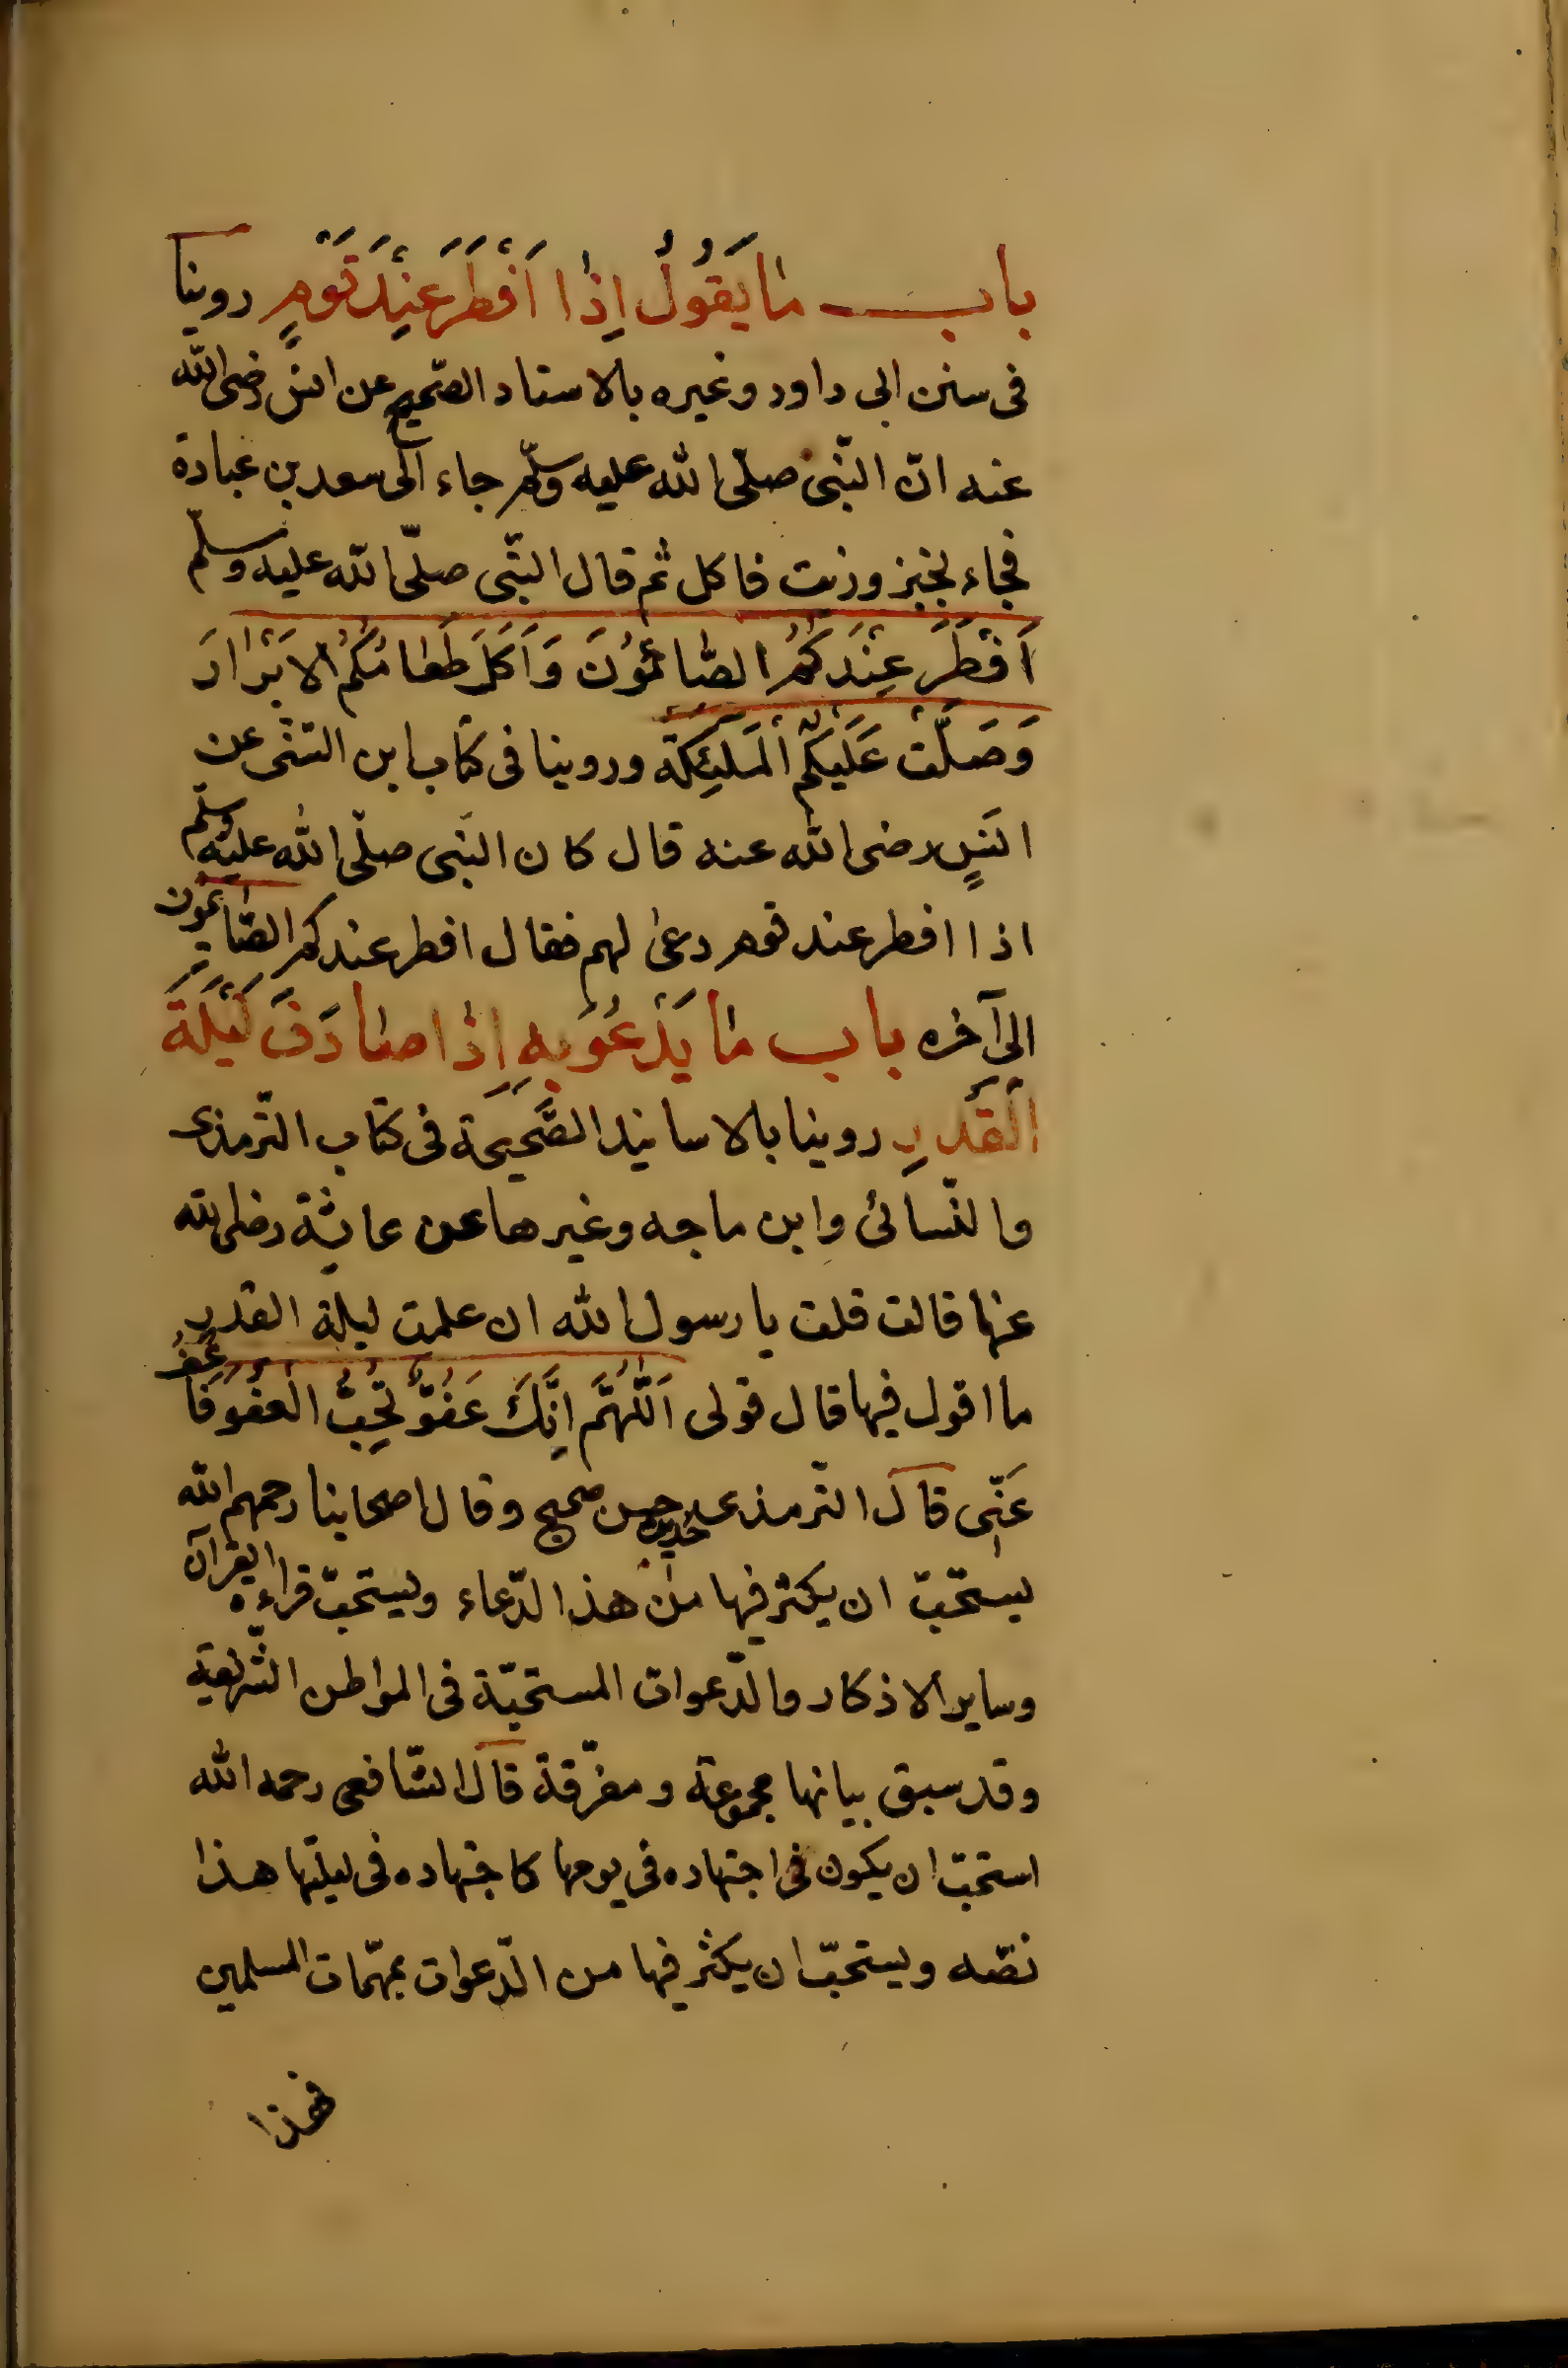 باب مَا يَقُولُ إِذَا اَفْطَرَ عِنْدَ قَوْمٍ روينا
فى سنن ابى داود وغيره بالاسناد الصّحيح عن انس رضى الله
عنه انّ النّبى صلّى الله عليه وسلّم جاء الى سعد بن عبادة
فجاء بخبز وزيت فاكل ثم قال النّبى صلّى الله عليه وسلّم
اَفْطَرَ عِنْدَكُمُ الصَّائمُوْنَ وَاَكَلَ طَعَامَكُمُ الاَبْرَارَ
وَصَلَّتْ عَلَيْكُمُ الْمَلَئِكَةُ وروينا فى كتاب ابن السّنّى عن
انَسٍ رضى الله عنه قال كان النّبى صلّى الله عليه وسلّم
اذا افطر عند قوم دعىٰ لهم فقال افطر عندكم الصّائمون
الىٰ آخره باب مَا يَدْعُوْ بِهِ اِذَا صَادَفَ لَيْلَةَ
الْقَدْرِ روينا بالاسانيد الصَّحيحة فى كتاب التّرمذى
والنّسائى وابن ماجه وغيرها عن عايشة رضى الله
عنها قالت قلت يا رسول الله ان علمت ليلة القدر
ما اقول فيها قال قولى اَللّٰهُمَّ اِنَّكَ عَفُوٌّ تُحِبُّ الْعَفْوَ فَاعْفُ
عَنِّى قال التّرمذى حديث حسن صحيح وقال اصحابنا رحمهم الله
يستحبّ ان يكثر فيها من هذا الدّعاء ويستحبّ قراءة القرآن
وساير الاذكار والدّعوات المستحبّة فى المواطن الشّريفة
وقد سبق بيانها مجموعة ومفرّقة قال الشّافعى رحمه الله
استحبّ ان يكون فى اجتهاده فى يومها كاجتهاده فى ليلتها هذا
نصّه ويستحبّ ان يكثر فيها من الدّعوات بمهمّات المسلمين
فهذا